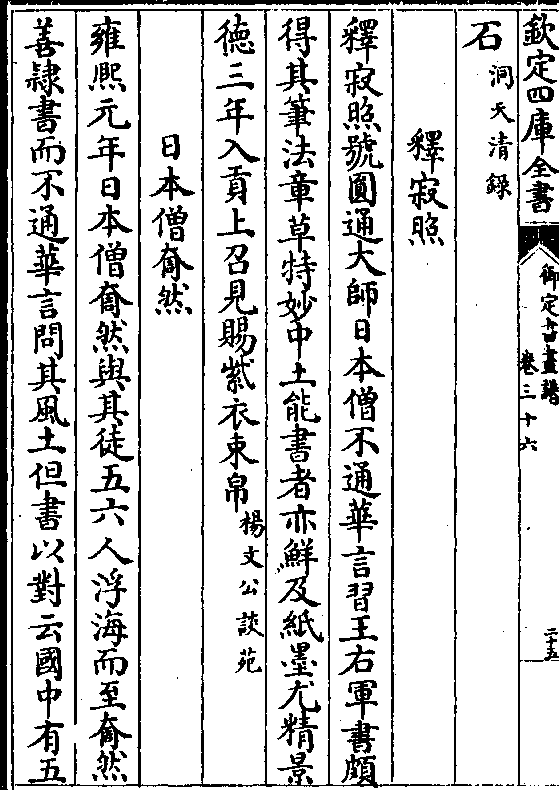 欽定四庫全書
御定書畫譜
卷三十六
二十五
石洞天清録
釋寂照
釋寂照號圓通大師日本僧不通華言習王右軍書頗
得其筆法章草特妙中土能書者亦鮮及紙墨尤精景
徳三年入貢上召見賜紫衣束帛楊文公談苑
日本僧奝然
雍熙元年日本僧奝然與其徒五六人浮海而至奝然
善隷書而不通華言問其風土但書以對云國中有五